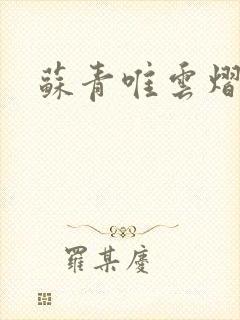 蘇青唯雲熠
羅某慶